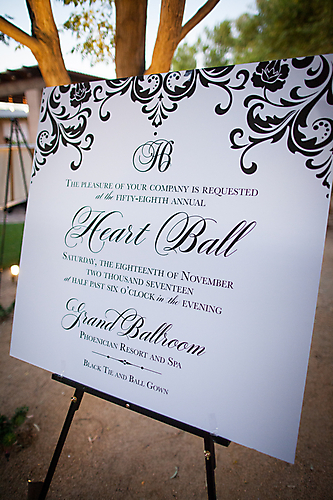 HB
The pleasure of your company is requested
at the fifty-eighth annual
Heart Ball
Saturday, the eighteenth of November
two thousand seventeen
at half past six o'clock in the evening
Grand Ballroom
Phoenician Resort and Spa
Black Tie and Ball Gown